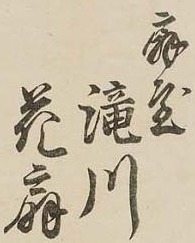 扇屋
滝川
花扇